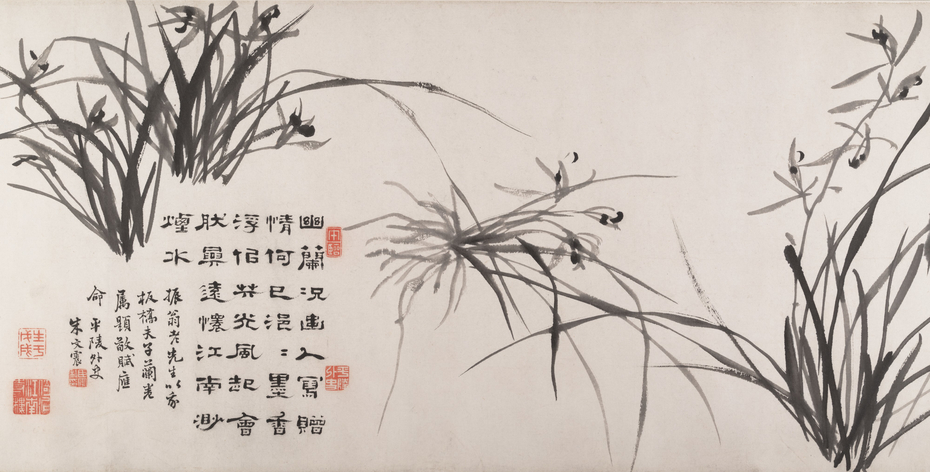 幽蘭況人寫贈
情何已浥〻墨香
浮佀共光風起會
肰興遠懷江南渺
煙水
振翁老先生以家
板橋夫子蘭卷
屬題敬賦應
命 平陵外史
朱文震